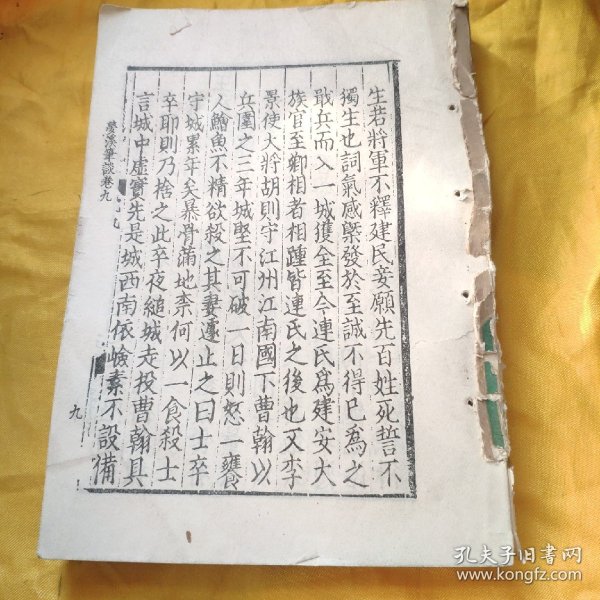 生若將軍不釋建民妾願先百姓死誓不
獨生也詞氣感槩發於至誠不得已爲之
戢兵而入一城獲全至今連氏爲建安大
族官至卿相者相踵皆連氏之後也又李
景使大將胡則守江州江南國下曹翰以
兵圍之三年城堅不可破一日則怒一饔
人鱠魚不精欲殺之其妻遽止之曰士卒
守城累年矣暴骨滿地柰何以一食殺士
卒耶則乃捨之此卒夜縋城走投曹翰具
言城中虛實先是城西南依嶮素不設備
夢溪筆談卷九
九
孔夫子旧书网
www.kongfz.com